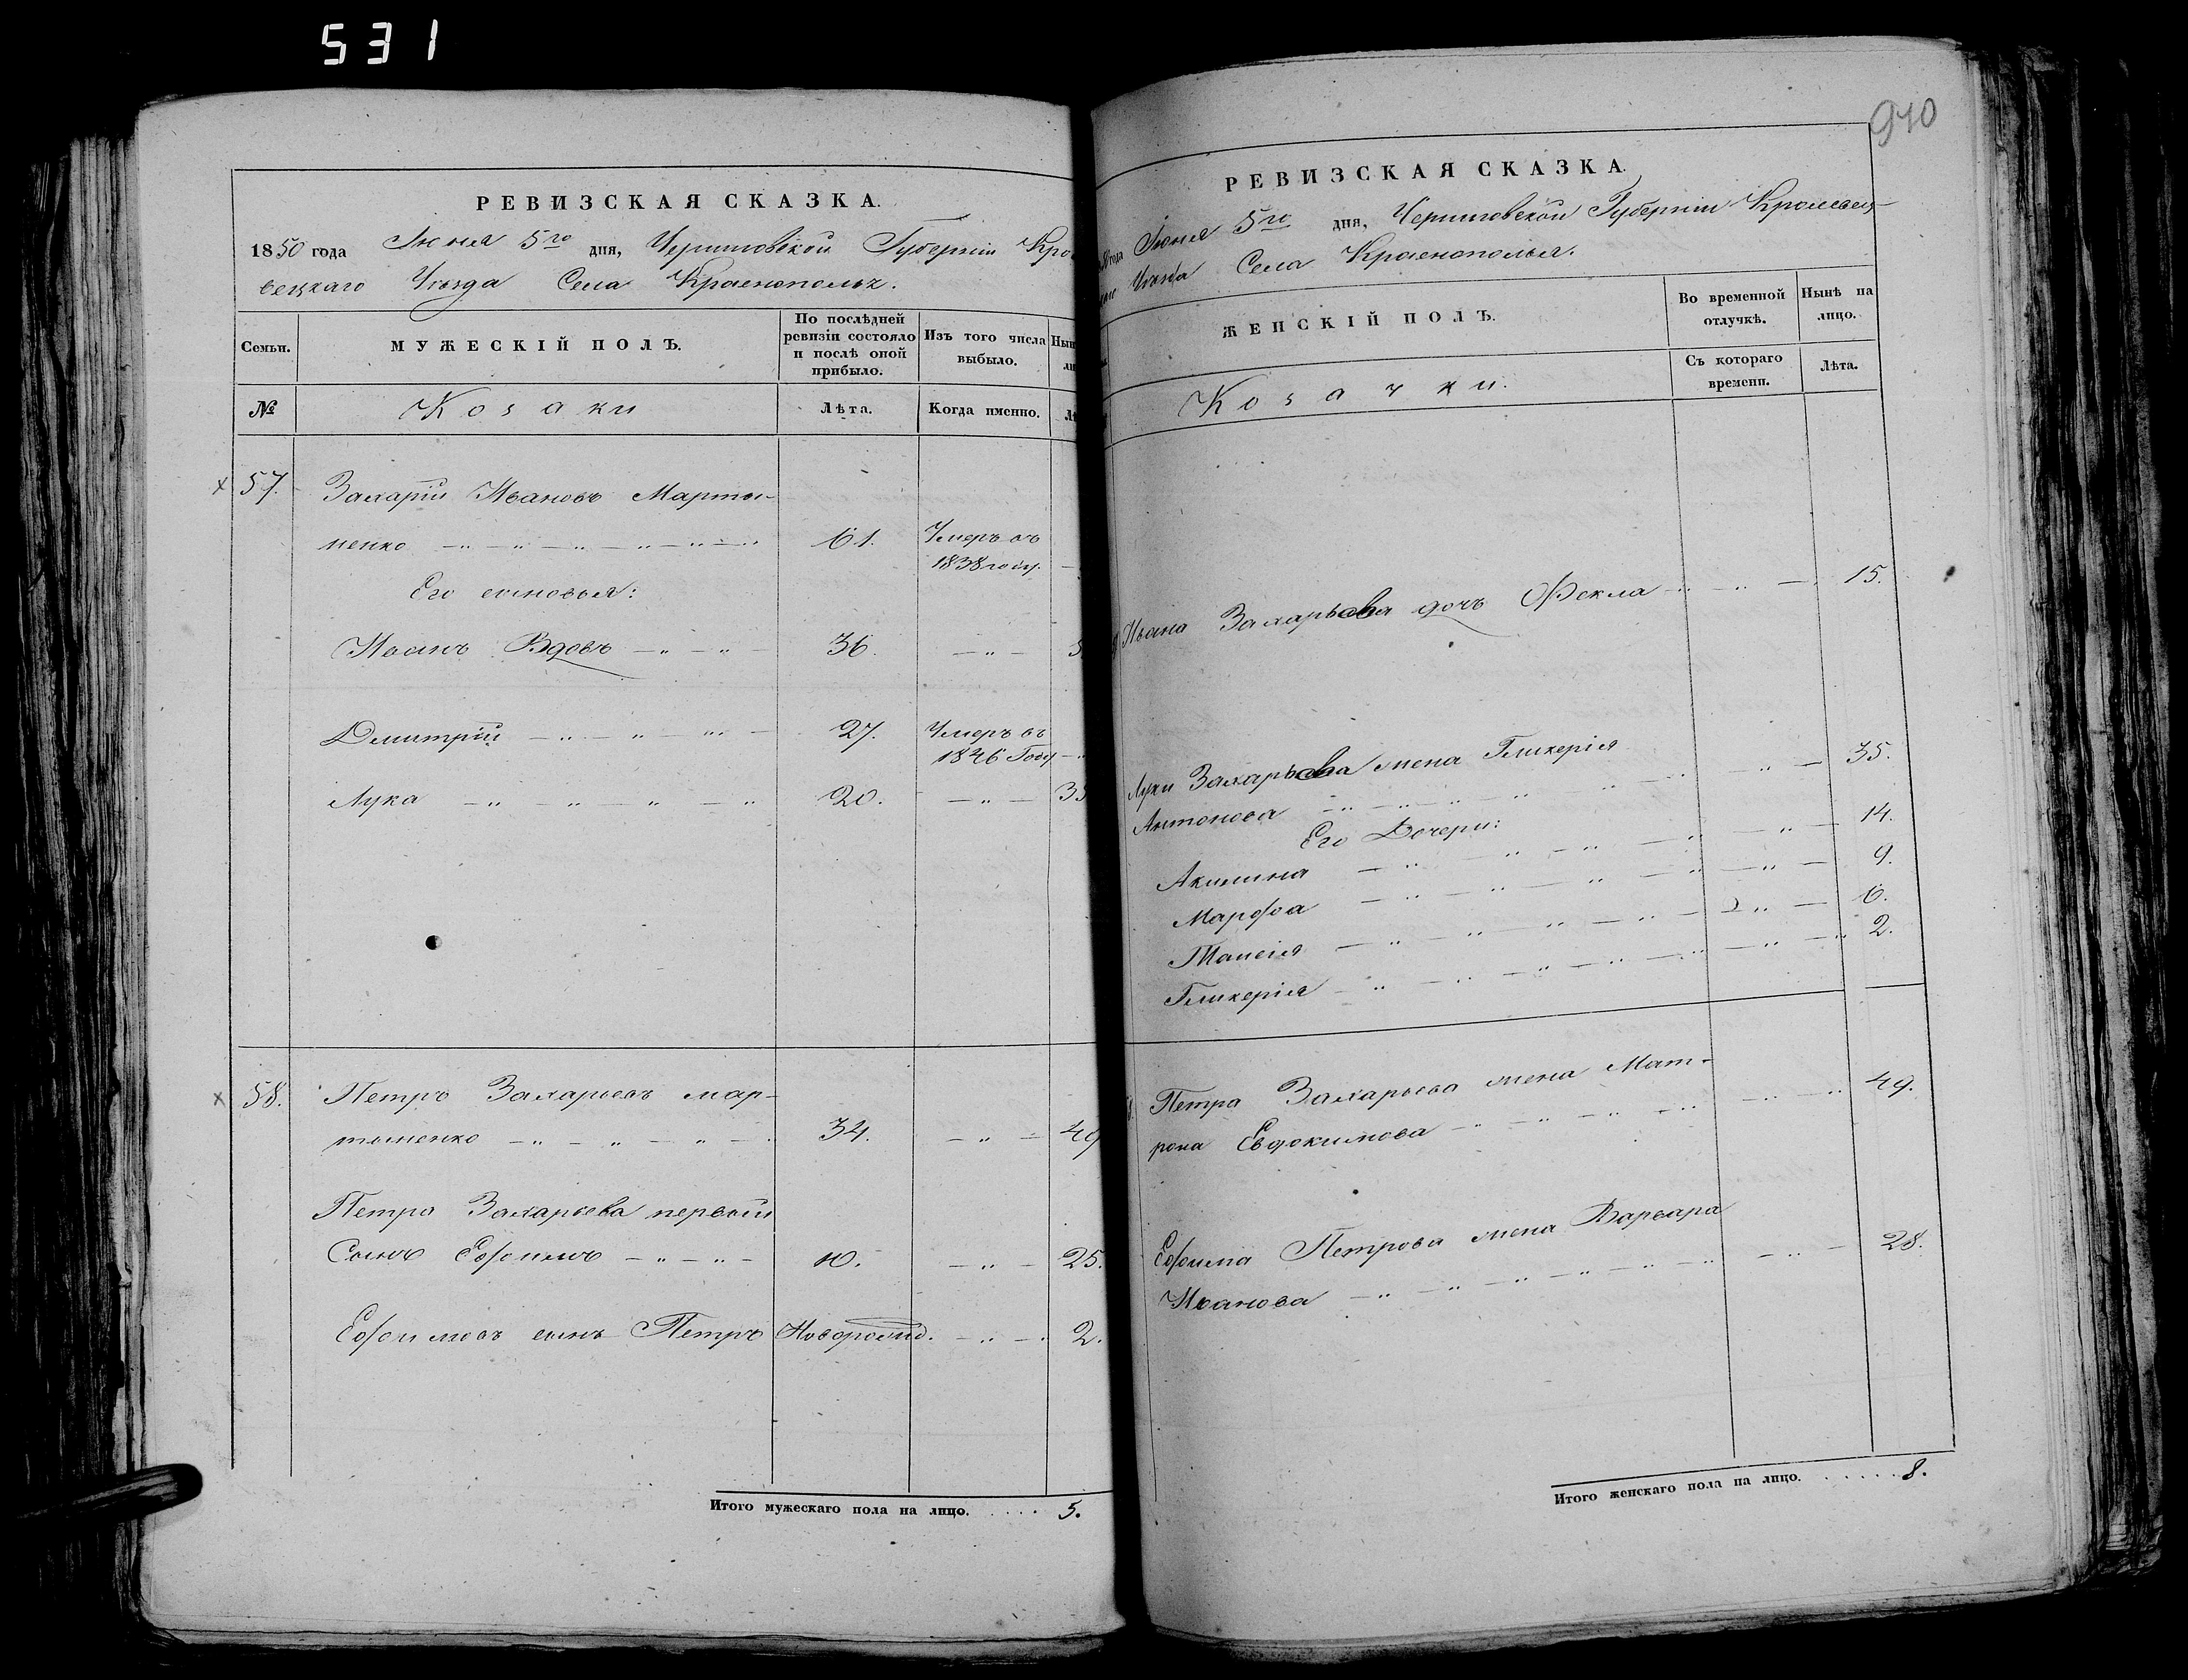 531
РЕВИЗСКАЯ СКАЗКА.
1850 года Іюня 5го дня, Черниговской Губерніи Кро
вецкаго Уезда Села Краснополья.
Семьи.
МУЖЕСКІЙ ПОЛЪ.
По послѣдней ревизіи состояло и послѣ оной прибыло.
Изъ того числа выбыло.
№
Козаки
Лѣта.
Когда именно.
57. Захарій Ивановъ Марты-
ненко 61. Умеръ въ
1838 году.
Его сыновья:
Иванъ Вдовъ 36.
Дмитрій 27. Умеръ въ
1846 Году
Лука 20. 35
58. Петръ Захарьевъ мар-
тыненко 34. 49
Петра Захарьева первый
Сынъ Ефимъ 10. 25.
Ефимовъ сынъ Петръ Новорожд. 2.
Итого мужескаго пола на лицо. 5.
940
РЕВИЗСКАЯ СКАЗКА.
года Іюня 5го дня, Черниговской Губерніи Кролевец-
Уезда Села Краснополья.
ЖЕНСКІЙ ПОЛЪ.
Во временной отлучкѣ.
Нынѣ на лицо.
Козачки.
Съ котораго времени.
Лѣта.
Ивана Захарьева дочь Фекла 15.
Луки Захарьева жена Гликерія
Антонова 35.
Его Дочери:
Акилина 14.
Марфа 9.
Таисія 6.
Гликерія 2.
Петра Захарьева жена Мат-
рона Евдокимова 49.
Ефима Петрова жена Варвара
Иванова 28.
Итого женскаго пола на лицо. 8.